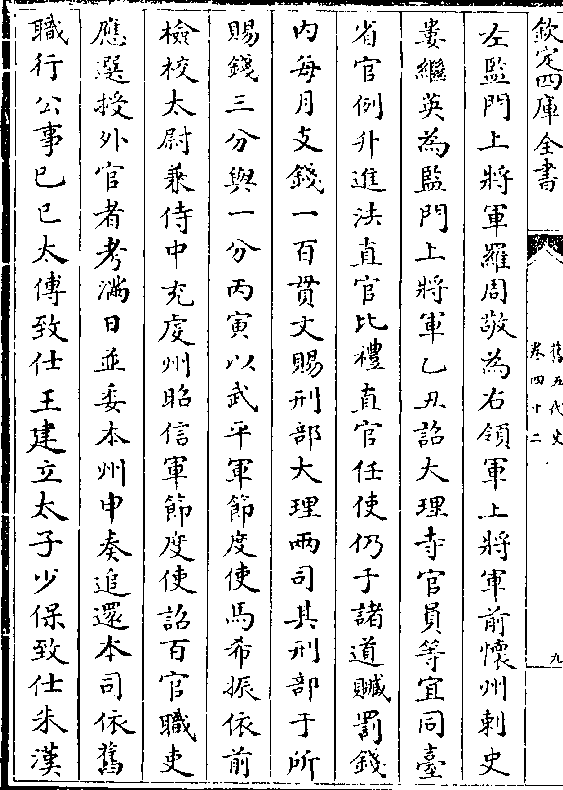 欽定四庫全書
舊五代史
卷四十二
九
左監門上將軍羅周敬為右領軍上將軍前懷州刺史
婁繼英為監門上將軍乙丑詔大理寺官員等宜同臺
省官例升進法直官比禮直官任使仍于諸道贓罰錢
内每月支錢一百貫文賜刑部大理兩司其刑部于所
賜錢三分與一分丙寅以武平軍節度使馬希振依前
檢校太尉兼侍中充䖍州昭信軍節度使詔百官職吏
應選授外官者考滿日並委本州申奏追還本司依舊
職行公事已巳太傅致仕王建立太子少保致仕朱漢